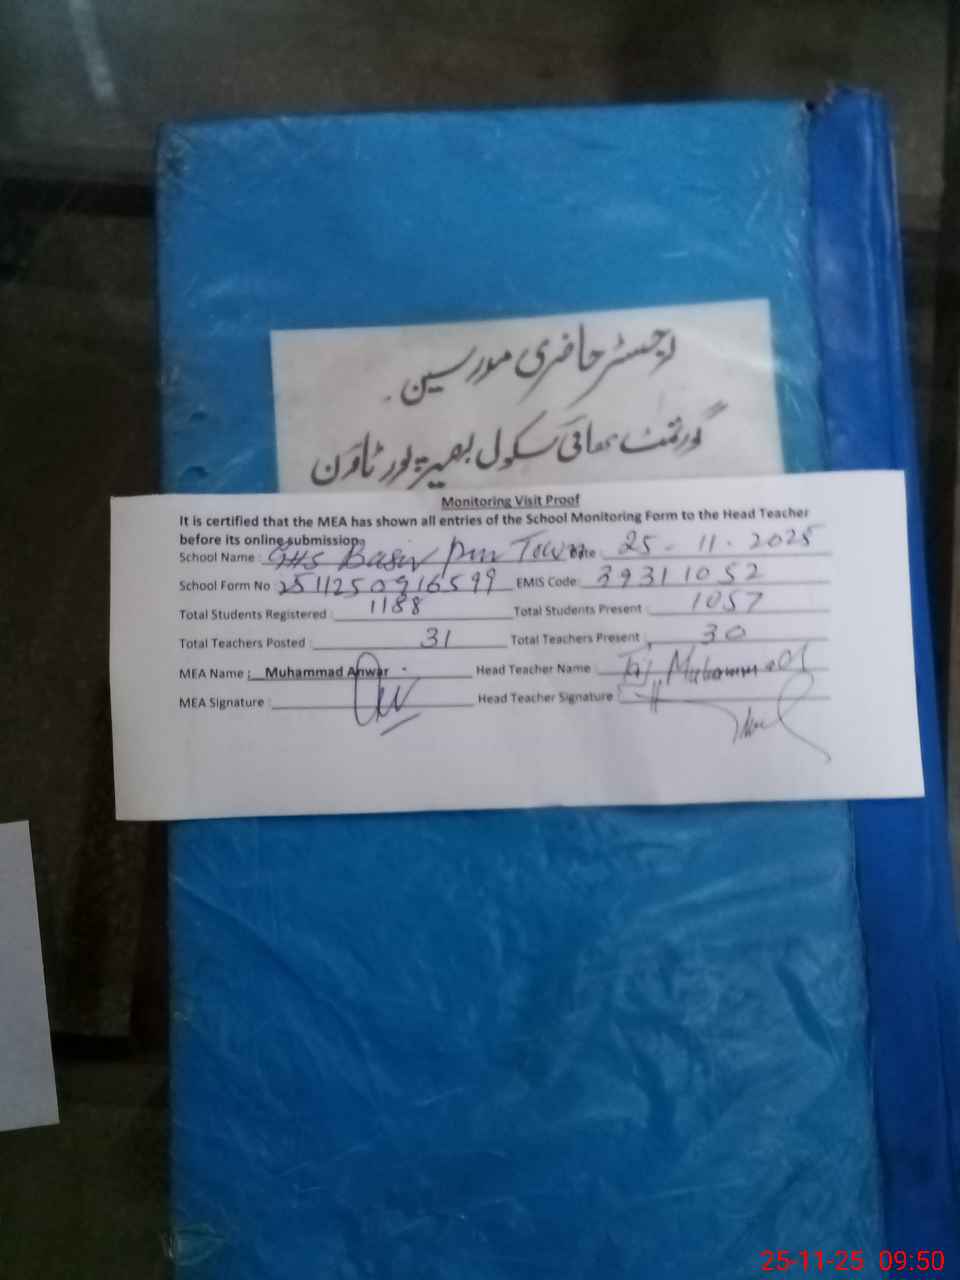 رجسٹر حاضری مدرسین
گورنمنٹ ہائی سکول بصیرپور ٹاؤن
Monitoring Visit Proof
It is certified that the MEA has shown all entries of the School Monitoring Form to the Head Teacher
before its online submission.
School Name : GHS Basir Pur Town Date : 25 - 11 . 2025
School Form No : 2511250916599 EMIS Code: 39311052
Total Students Registered : 1188 Total Students Present : 1057
Total Teachers Posted : 31 Total Teachers Present : 30
MEA Name : Muhammad Anwar Head Teacher Name : Taj Muhammad
MEA Signature : Head Teacher Signature :
25-11-25 09:50